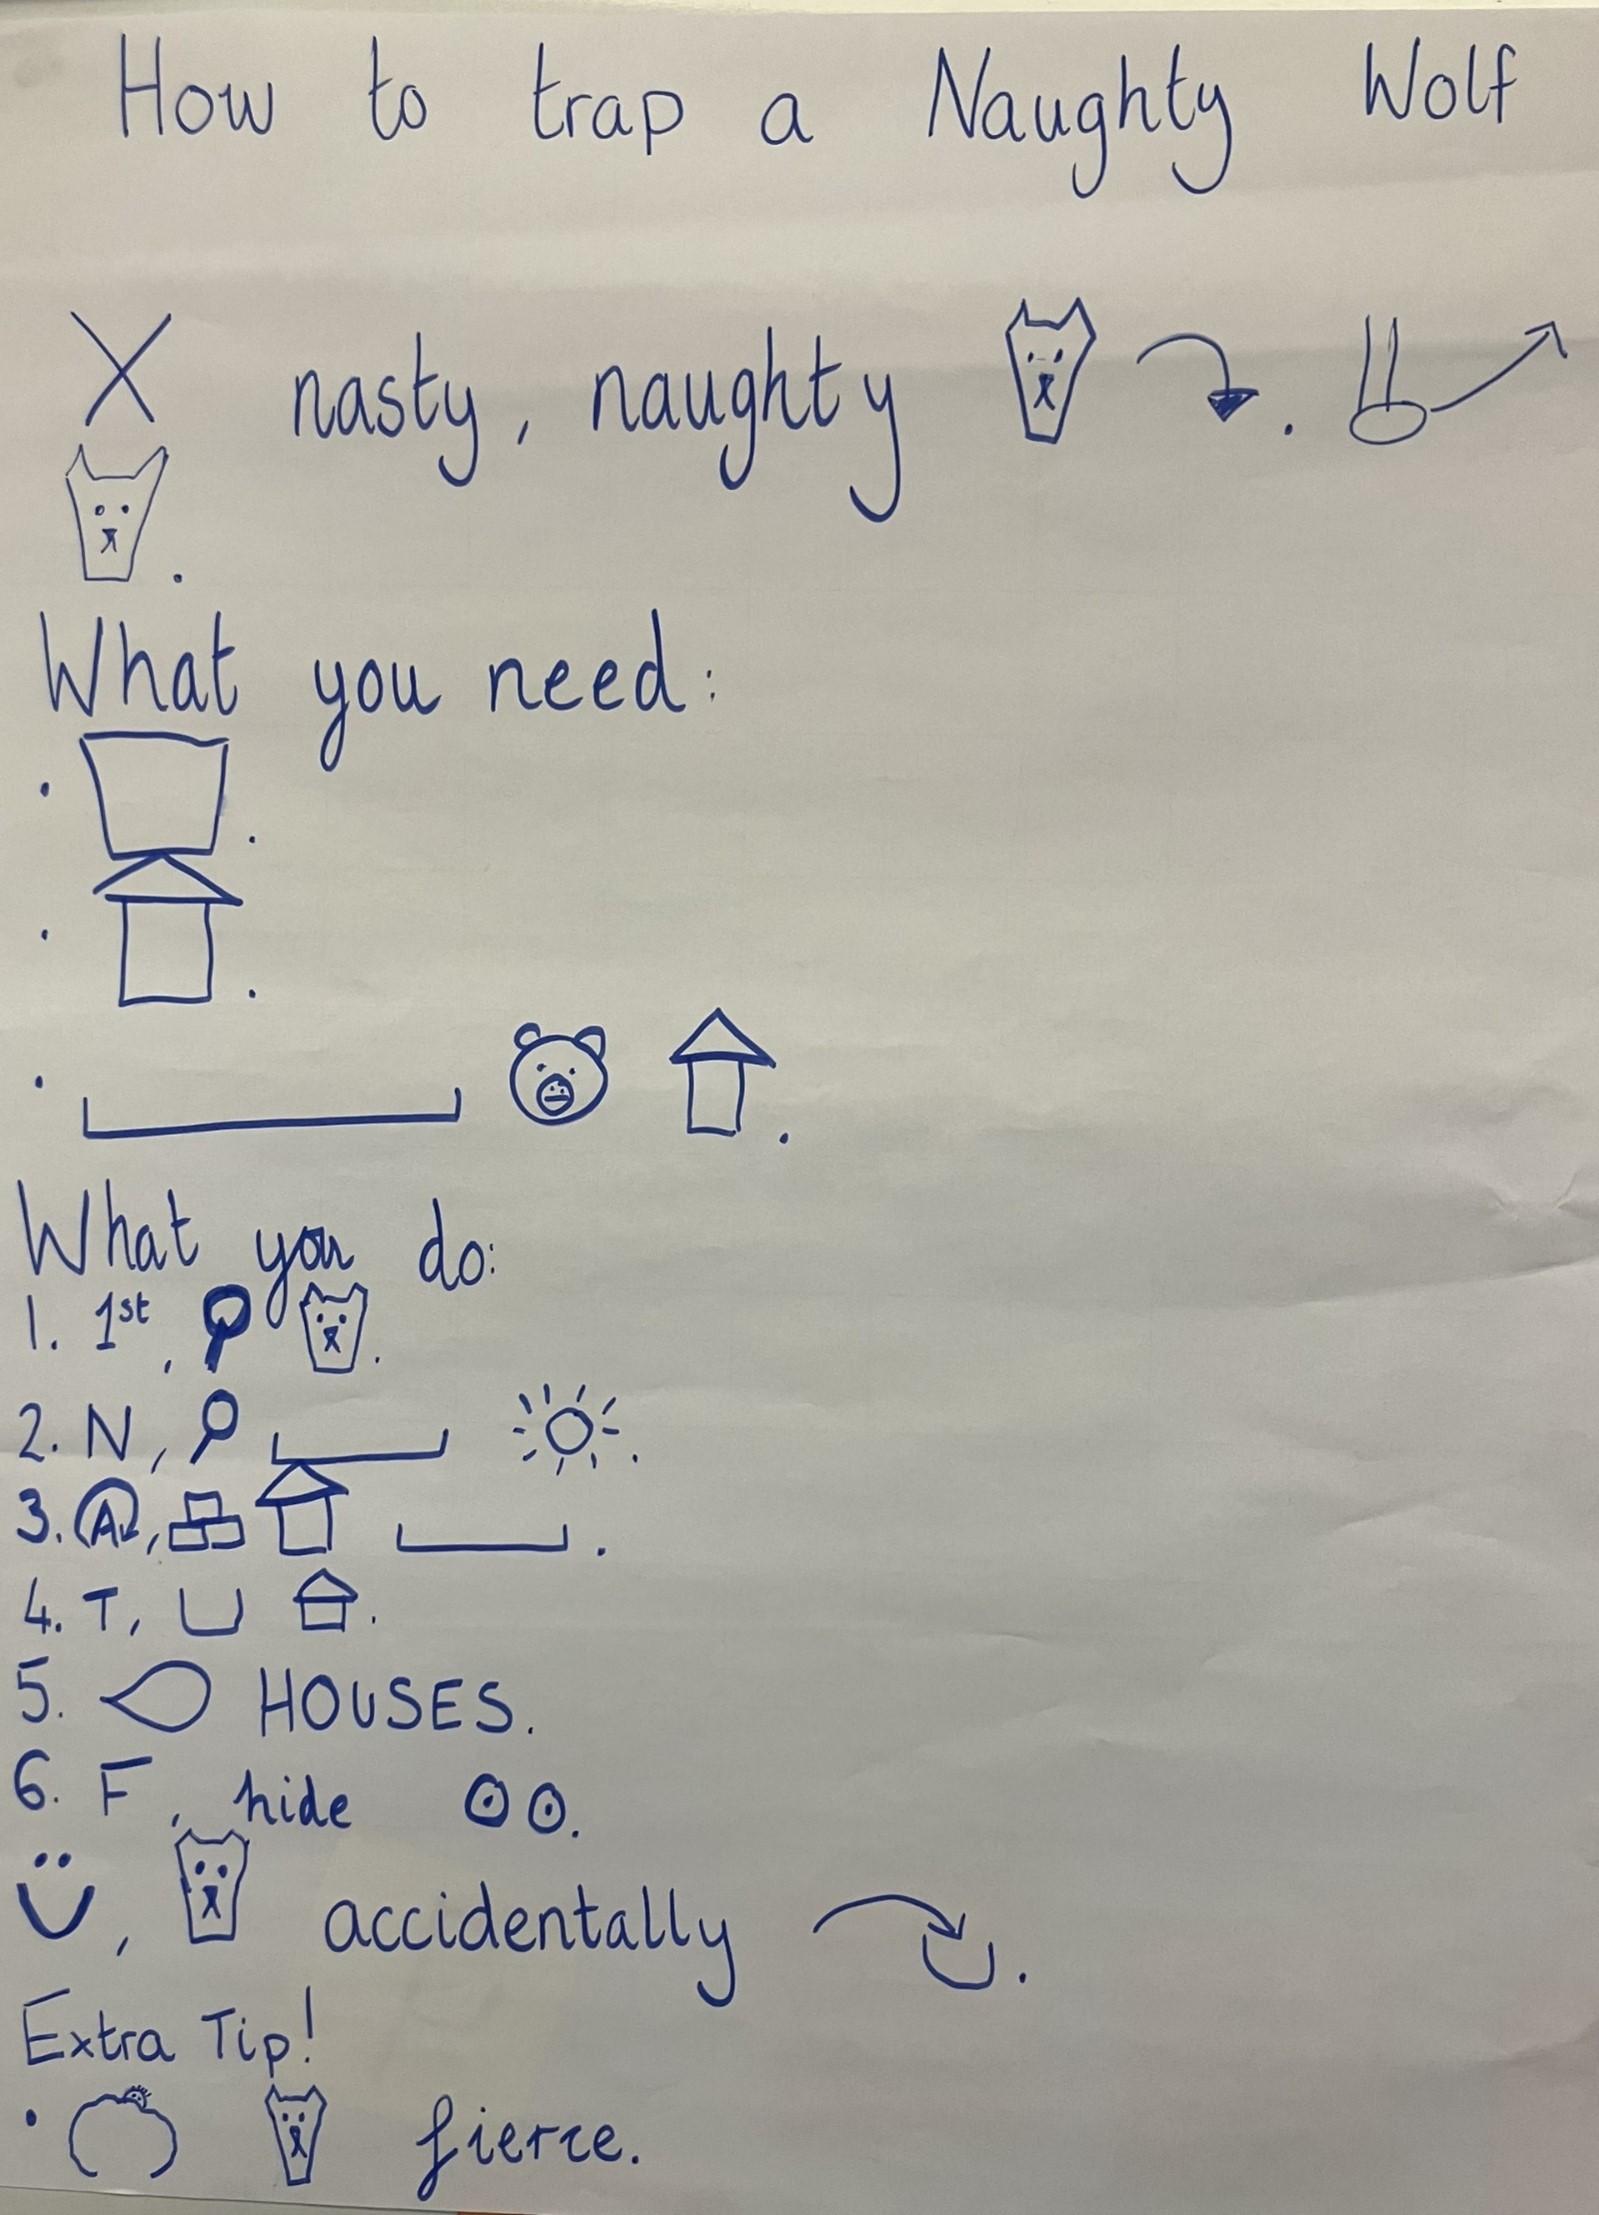 How to trap a Naughty Wolf
X nasty, naughty .
.
What you need:
• .
• .
• .
What you do:
1. 1st, .
2. N, .
3. A, .
4. T, .
5. HOUSES.
6. F, hide .
, accidentally .
Extra Tip!
• fierce.